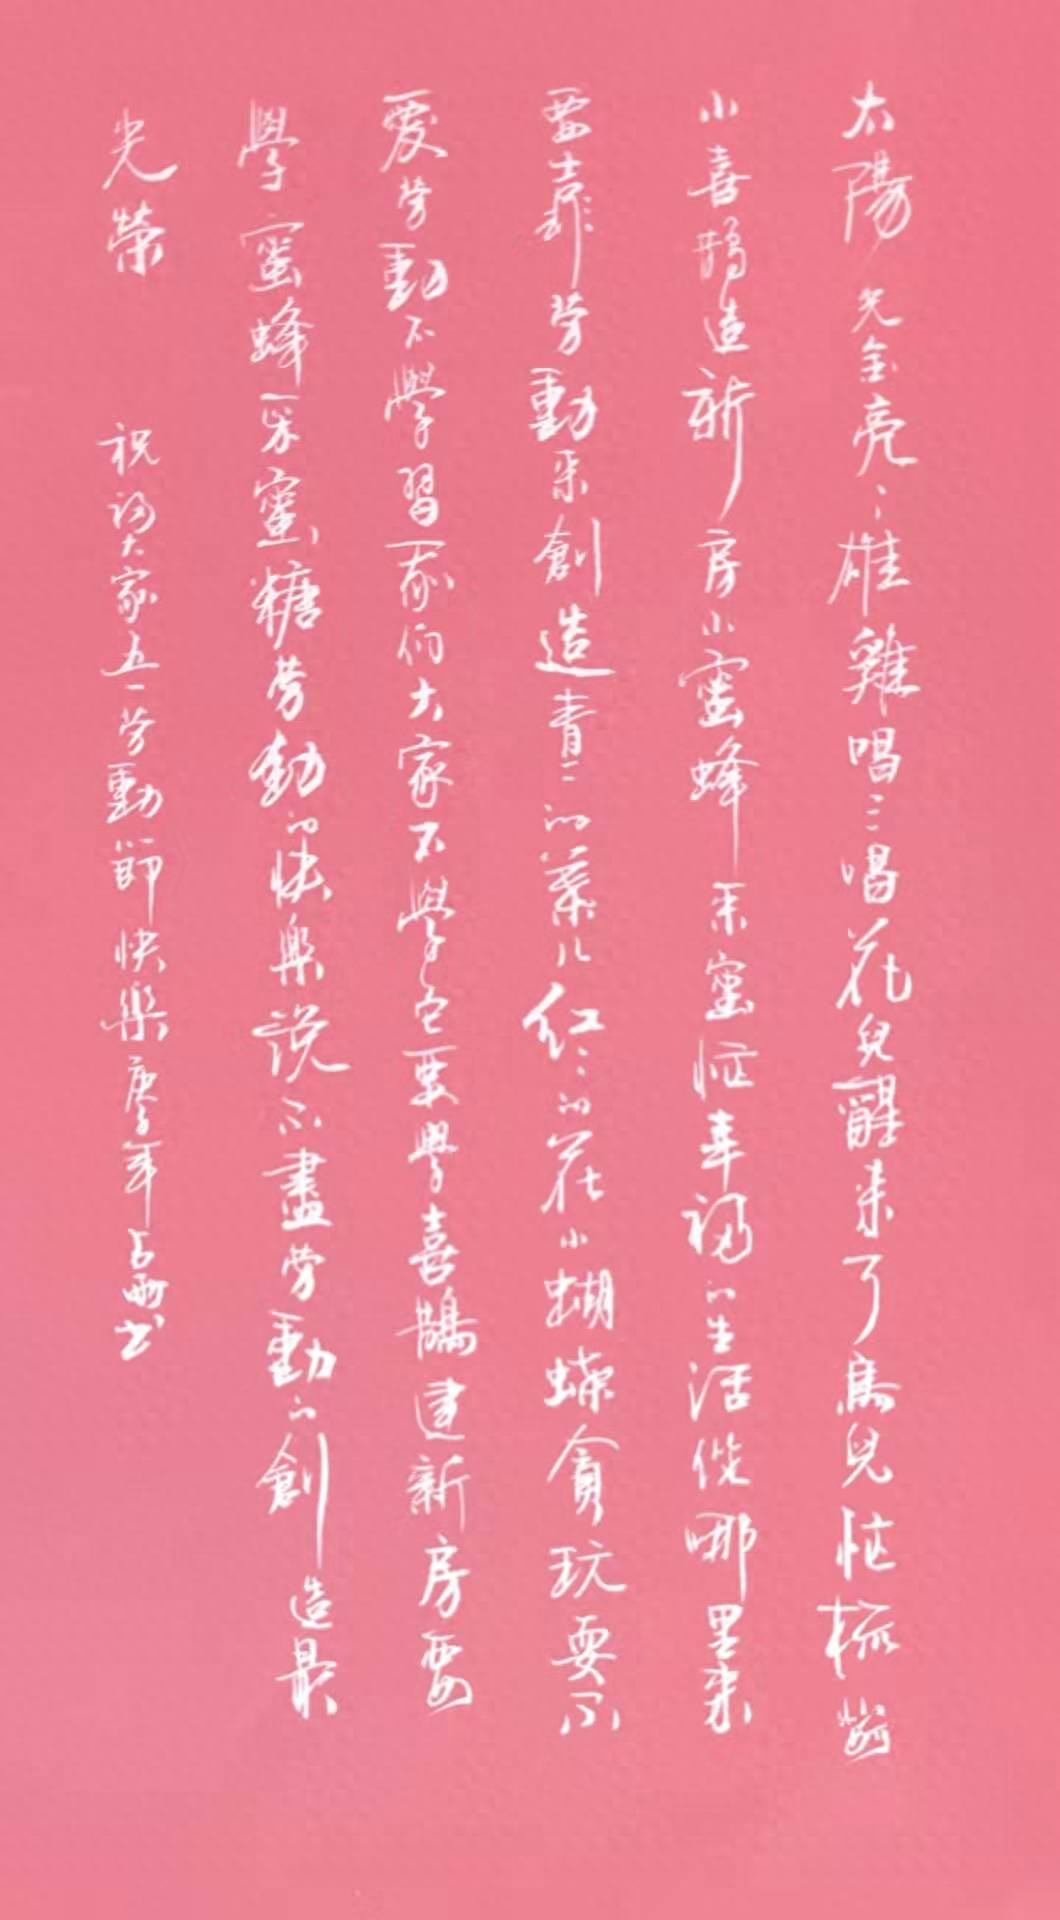 太陽光金亮〻雄雞唱三唱花兒醒來了鳥兒忙梳
小喜鵲造新房小蜜蜂采蜜忙幸福的生活從哪里來
要靠劳動來創造青〻的葉儿紅〻的花小蝴蝶貪玩耍不
愛劳動不學習我們大家不學它要學喜鵲建新房要
學蜜蜂采蜜糖劳動的快樂說不盡劳動的創造最
光榮 祝福大家五一劳動節快樂 年 书